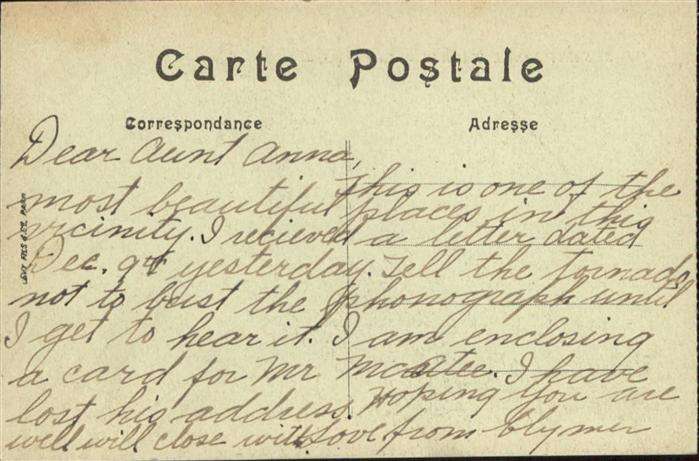 Carte Postale
Correspondance
Adresse
Dear Aunt Anna,
This is one of the
most beautiful places in this
vicinity. I recieved a letter dated
Dec. 9th yesterday. Tell the tornado
not to bust the phonograph until
I get to hear it. I am enclosing
a card for Mr. I have
lost his address. Hoping you are
well will close with love from Clymer